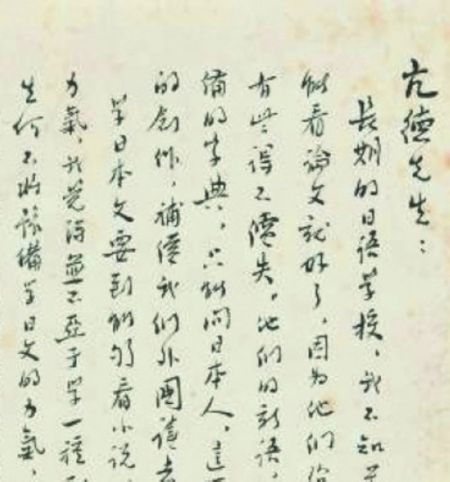 亢德先生：
長期的日語學校，我不知
能看論文就好了，因为他們紹
有些得不償失。他們的新語，
備的字典，只能問日本人，這
的創作，補償我們外國讀者
學日本文要到能夠看小説，
力氣，我覺得並不亞于學一種
生何不將豫備學日文的力氣，